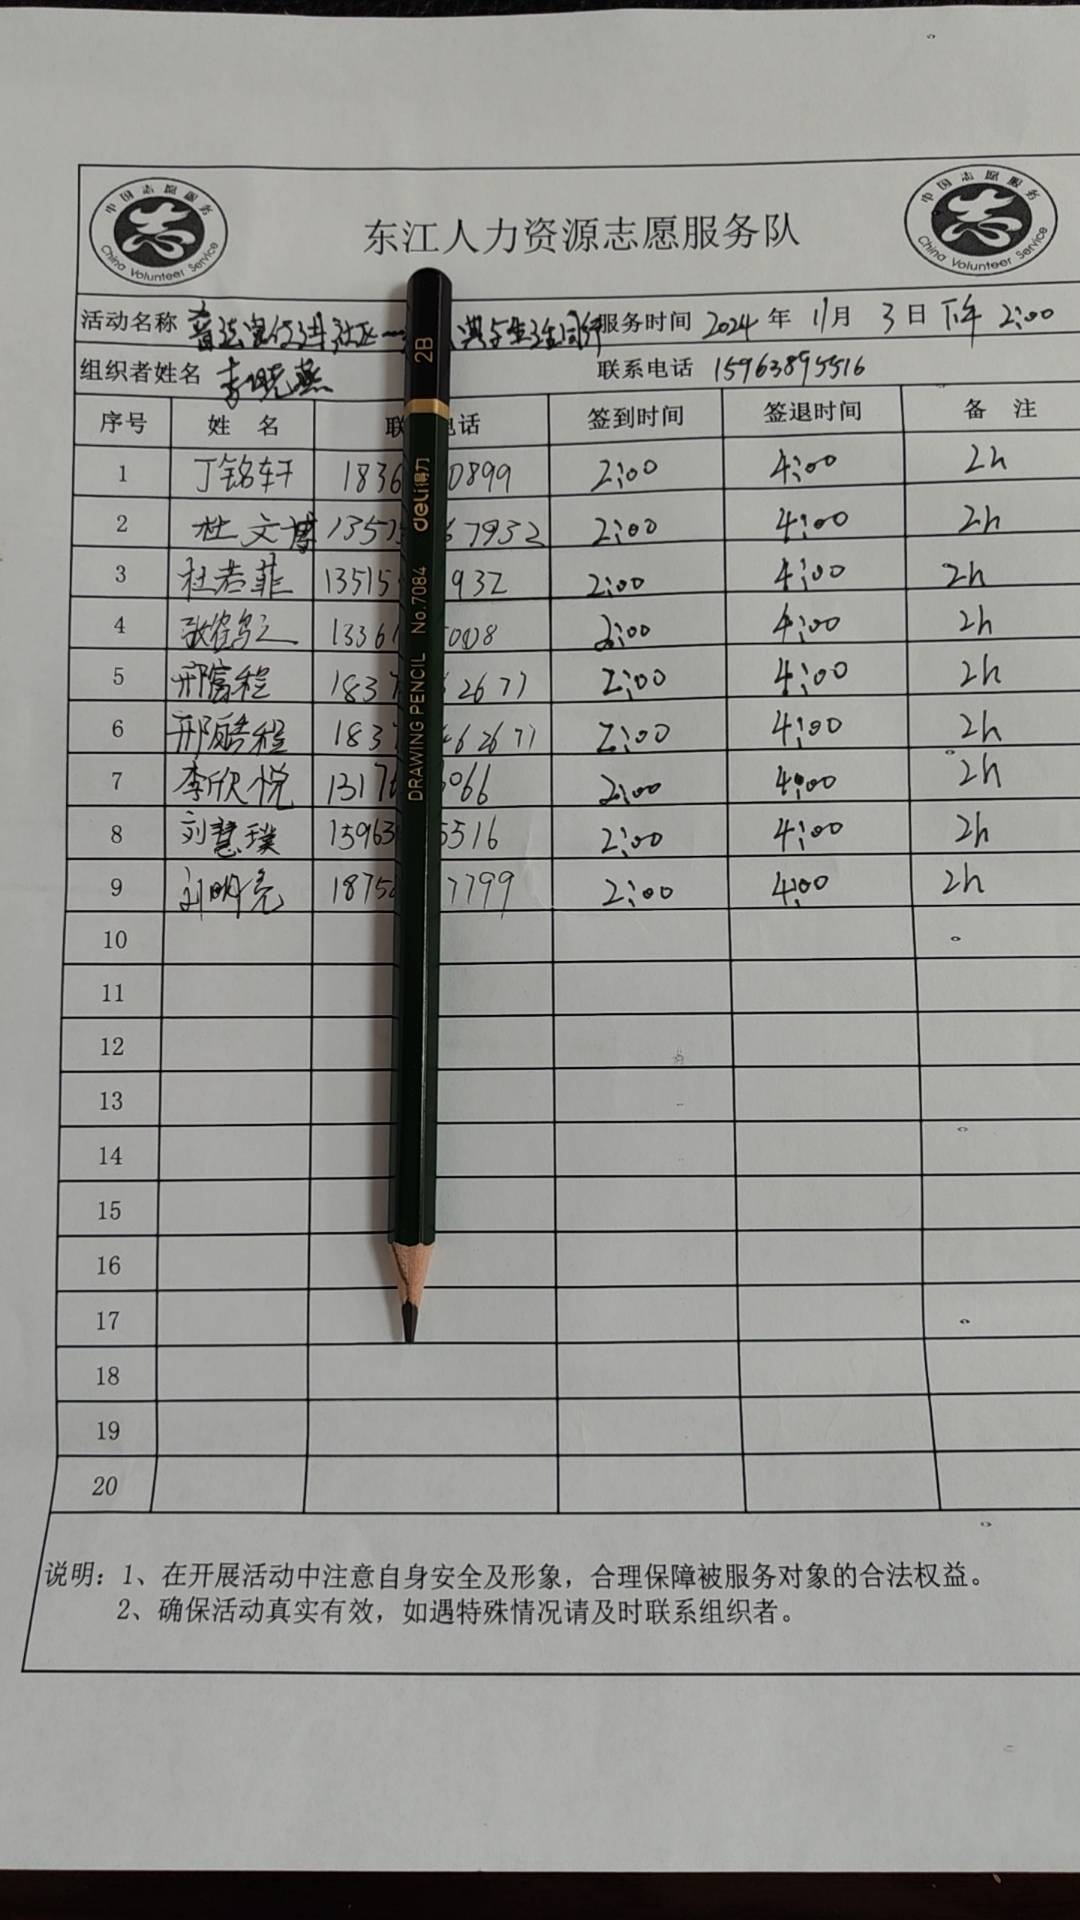 中国志愿服务
China Volunteer Service
东江人力资源志愿服务队
中国志愿服务
China Volunteer Service
活动名称 普法宣传进社区一 典与生活同行 服务时间 2024 年 11月 3日 下午 2:00
组织者姓名 李晓燕 联系电话 15963895516
序号 姓 名 联 电话 签到时间 签退时间 备 注
1 丁铭轩 1836 0899 2:00 4:00 2h
2 杜文博 1357 67932 2:00 4:00 2h
3 杜若菲 13515 932 2:00 4:00 2h
4 1336 2:00 4:00 2h
5 邢富程 1837 2671 2:00 4:00 2h
6 邢 程 1837 62671 2:00 4:00 2h
7 李欣悦 1317 066 2:00 4:00 2h
8 刘慧璞 15963 5516 2:00 4:00 2h
9 刘明亮 1875 7799 2:00 4:00 2h
10
11
12
13
14
15
16
17
18
19
20
说明：1、在开展活动中注意自身安全及形象，合理保障被服务对象的合法权益。
2、确保活动真实有效，如遇特殊情况请及时联系组织者。
2B
deli得力
No.7084
DRAWING PENCIL